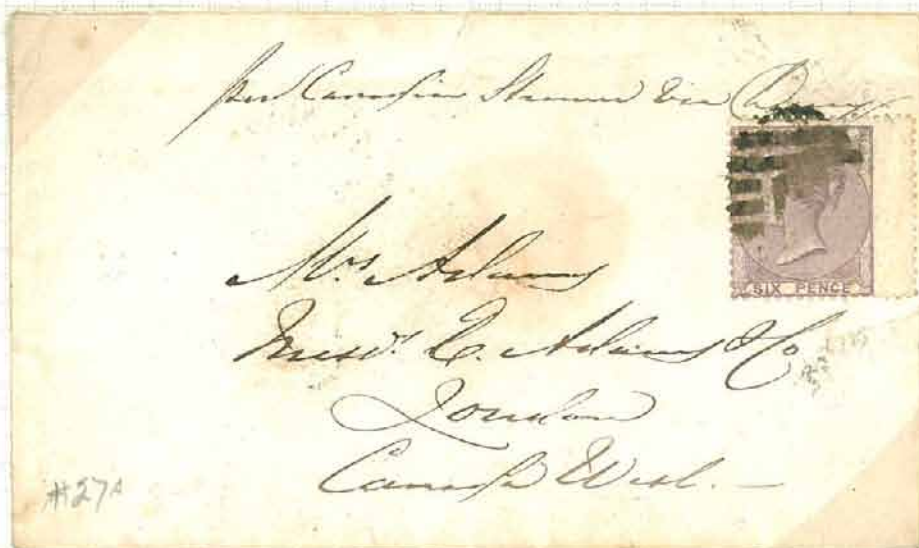 per Canadian Steamer via
SIX PENCE
Mrs Adams
Messrs. E. Adams & Co
London
Canada West.—
#27A